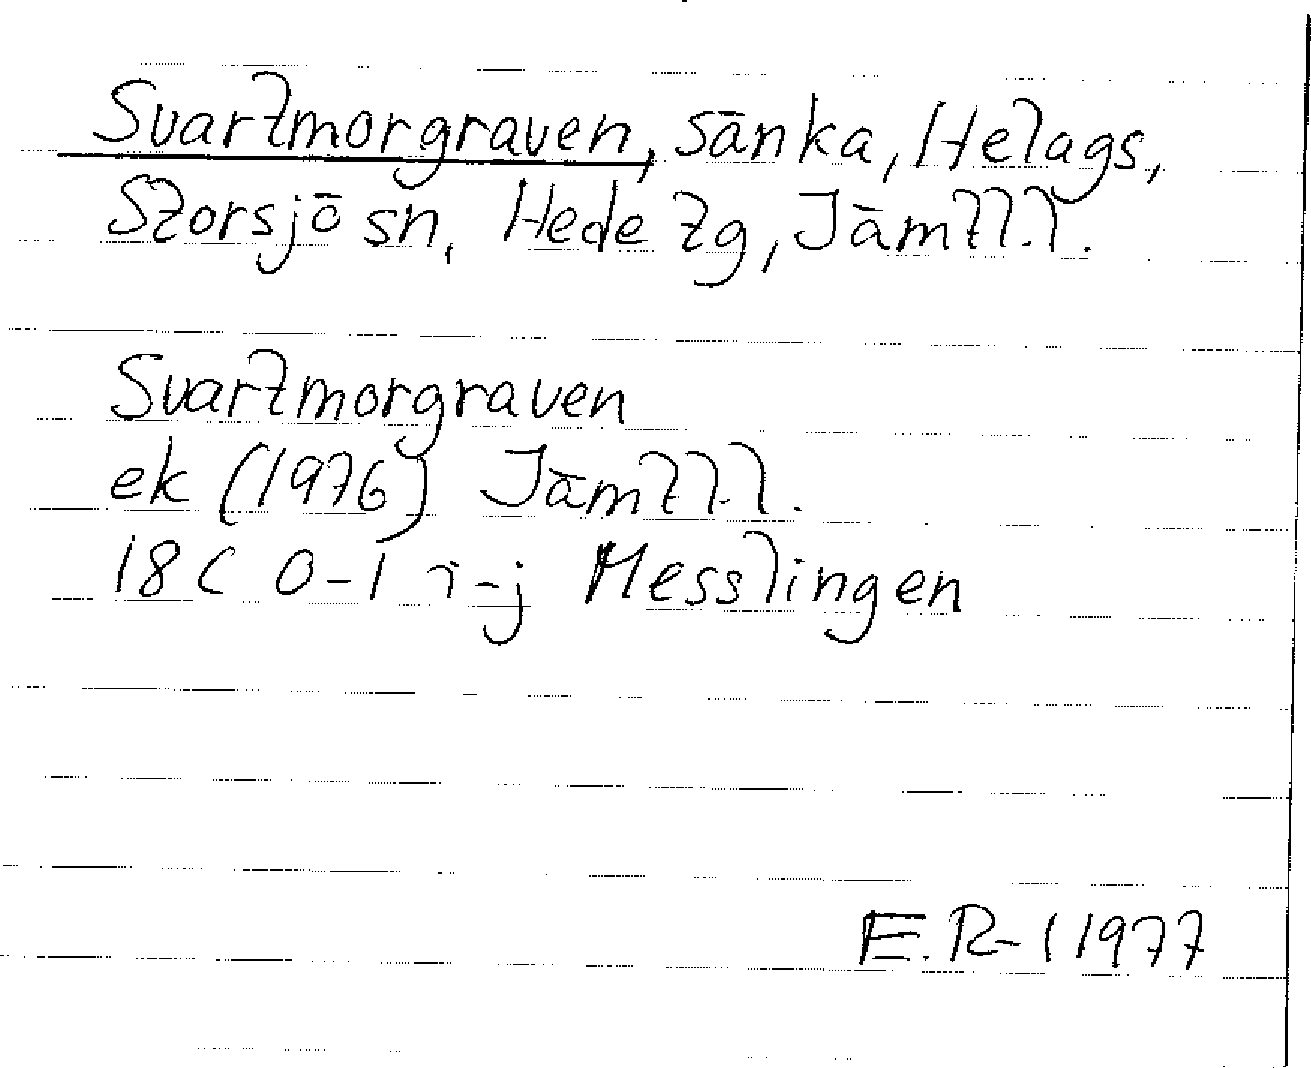 Svartmorgraven, sänka, Helags,
Storsjö sn, Hede tg, Jämtl.l.
Svartmorgraven
ek (1976) Jämtl.l.
18C 0-1 i-j Messlingen
E. R-l 1977